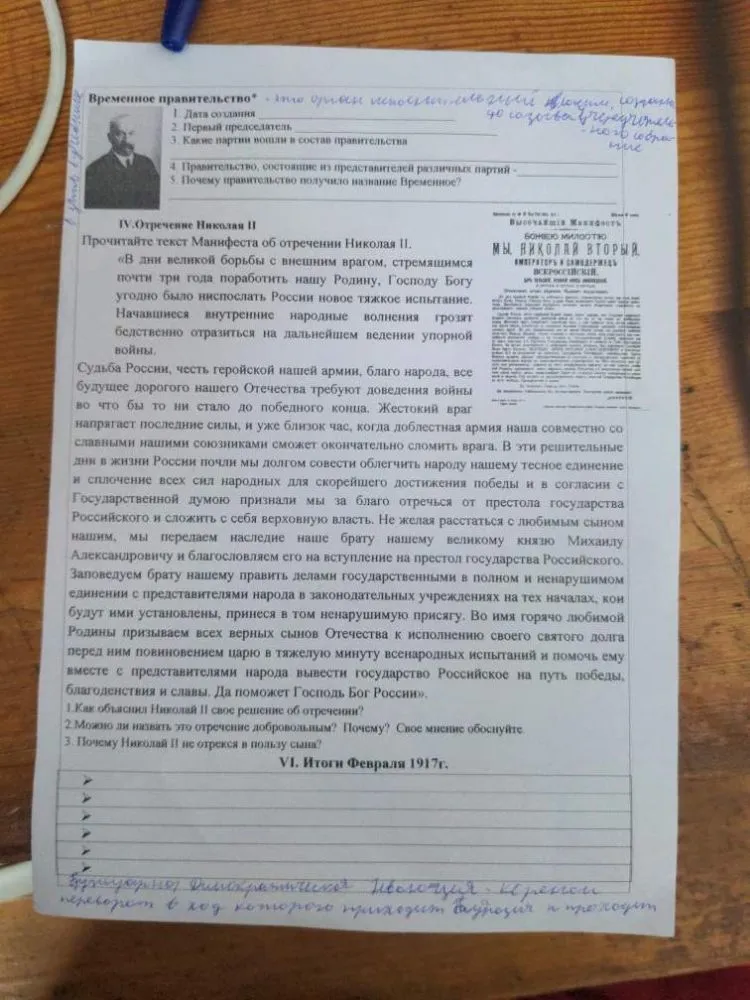 Временное правительство* - это орган исполнительной власти, создан
до созыва учредитель
-ного собра
ние
1. Дата создания
2. Первый председатель
3. Какие партии вошли в состав правительства
4. Правительство, состоящие из представителей различных партий -
5. Почему правительство получило название Временное?
IV.Отречение Николая II
Прочитайте текст Манифеста об отречении Николая II.
«В дни великой борьбы с внешним врагом, стремящимся
почти три года поработить нашу Родину, Господу Богу
угодно было ниспослать России новое тяжкое испытание.
Начавшиеся внутренние народные волнения грозят
бедственно отразиться на дальнейшем ведении упорной
войны.
Высочайшій Манифестъ.
БОЖІЕЮ МИЛОСТІЮ
МЫ, НИКОЛАЙ ВТОРЫЙ,
ИМПЕРАТОРЪ И САМОДЕРЖЕЦЪ
ВСЕРОССІЙСКІЙ,
Судьба России, честь геройской нашей армии, благо народа, все
будущее дорогого нашего Отечества требуют доведения войны
во что бы то ни стало до победного конца. Жестокий враг
напрягает последние силы, и уже близок час, когда доблестная армия наша совместно со
славными нашими союзниками сможет окончательно сломить врага. В эти решительные
дни в жизни России почли мы долгом совести облегчить народу нашему тесное единение
и сплочение всех сил народных для скорейшего достижения победы и в согласии с
Государственной думою признали мы за благо отречься от престола государства
Российского и сложить с себя верховную власть. Не желая расстаться с любимым сыном
нашим, мы передаем наследие наше брату нашему великому князю Михаилу
Александровичу и благословляем его на вступление на престол государства Российского.
Заповедуем брату нашему править делами государственными в полном и ненарушимом
единении с представителями народа в законодательных учреждениях на тех началах, кои
будут ими установлены, принеся в том ненарушимую присягу. Во имя горячо любимой
Родины призываем всех верных сынов Отечества к исполнению своего святого долга
перед ним повиновением царю в тяжелую минуту всенародных испытаний и помочь ему
вместе с представителями народа вывести государство Российское на путь победы,
благоденствия и славы. Да поможет Господь Бог России».
1.Как объяснил Николай II свое решение об отречении?
2.Можно ли назвать это отречение добровольным? Почему? Свое мнение обоснуйте
3. Почему Николай II не отрекся в пользу сына?
VI. Итоги Февраля 1917г.
Демократическая
переворот в ход которого приходит и проходит